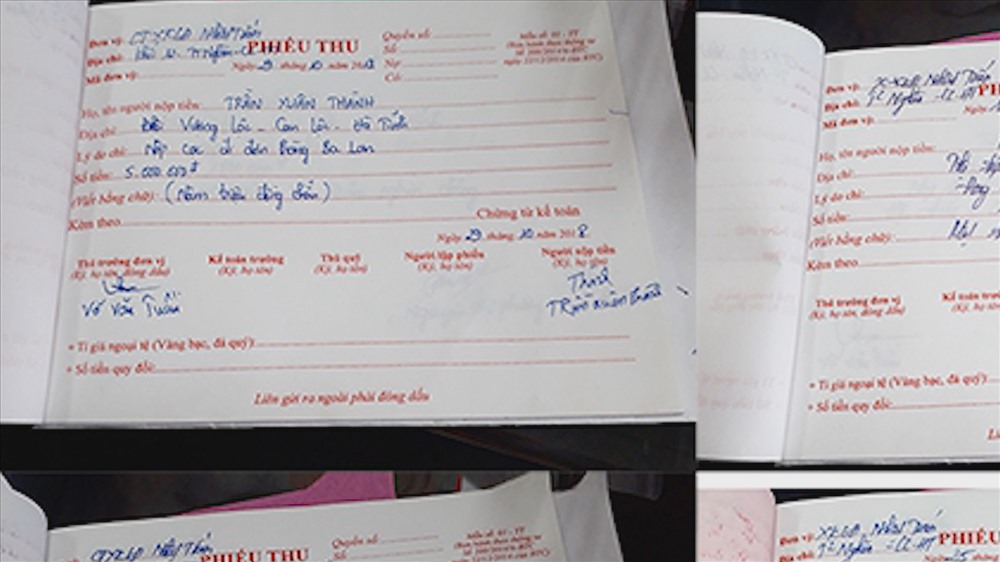 Đơn vị: CTXKLĐ NHÂN TUẤN
Địa chỉ:
Mã đơn vị:
PHIẾU THU
Ngày 29 tháng 10 năm 2018
Quyển số:
Số
Nợ:
Có:
Mẫu số: 01 - TT
(Ban hành theo thông tư
Số 200/2014/tt-BTC
ngày 22/12/2014 của BTC)
Họ, tên người nộp tiền: TRẦN XUÂN THÀNH
Địa chỉ: Vượng Lộc - Can Lộc - Hà Tĩnh
Lý do chi: Nộp cọc đi đơn hàng Ba Lan
Số tiền: 5.000.000đ
(Viết bằng chữ): (Năm triệu đồng chẵn)
Kèm theo Chứng từ kế toán
Ngày 29 tháng 10 năm 2018
Thủ trưởng đơn vị
(Ký, họ tên, đóng dấu)
Kế toán trưởng
(Ký, họ tên)
Thủ quỹ
(Ký, họ tên)
Người lập phiếu
(Ký, họ tên)
Người nộp tiền
(Ký, họ tên)
Võ Văn Tuấn
Thành
TRẦN XUÂN THÀNH
+ Tỉ giá ngoại tệ (Vàng bạc, đá quý):
+ Số tiền quy đổi:
Liên gửi ra ngoài phải đóng dấu
Đơn vị: XKLĐ NHÂN TUẤN
Địa chỉ:
Mã đơn vị:
PHI
Họ, tên người nộp tiền:
Địa chỉ:
Lý do chi:
Số tiền:
(Viết bằng chữ):
Kèm theo
Thủ trưởng đơn vị
(Ký, họ tên, đóng dấu)
Kế toán trưởng
(Ký, họ tên)
+ Tỉ giá ngoại tệ (Vàng bạc, đá quý):
+ Số tiền quy đổi:
Đơn vị: CTXKLĐ NHÂN TUẤN
PHIẾU THU
Quyển số:
Số
Mẫu số: 01 - TT
(Ban hành theo thông tư
Số 200/2014/tt-BTC
Đơn vị: XKLĐ NHÂN TUẤN
Địa chỉ:
PHIẾU
Ngày 25